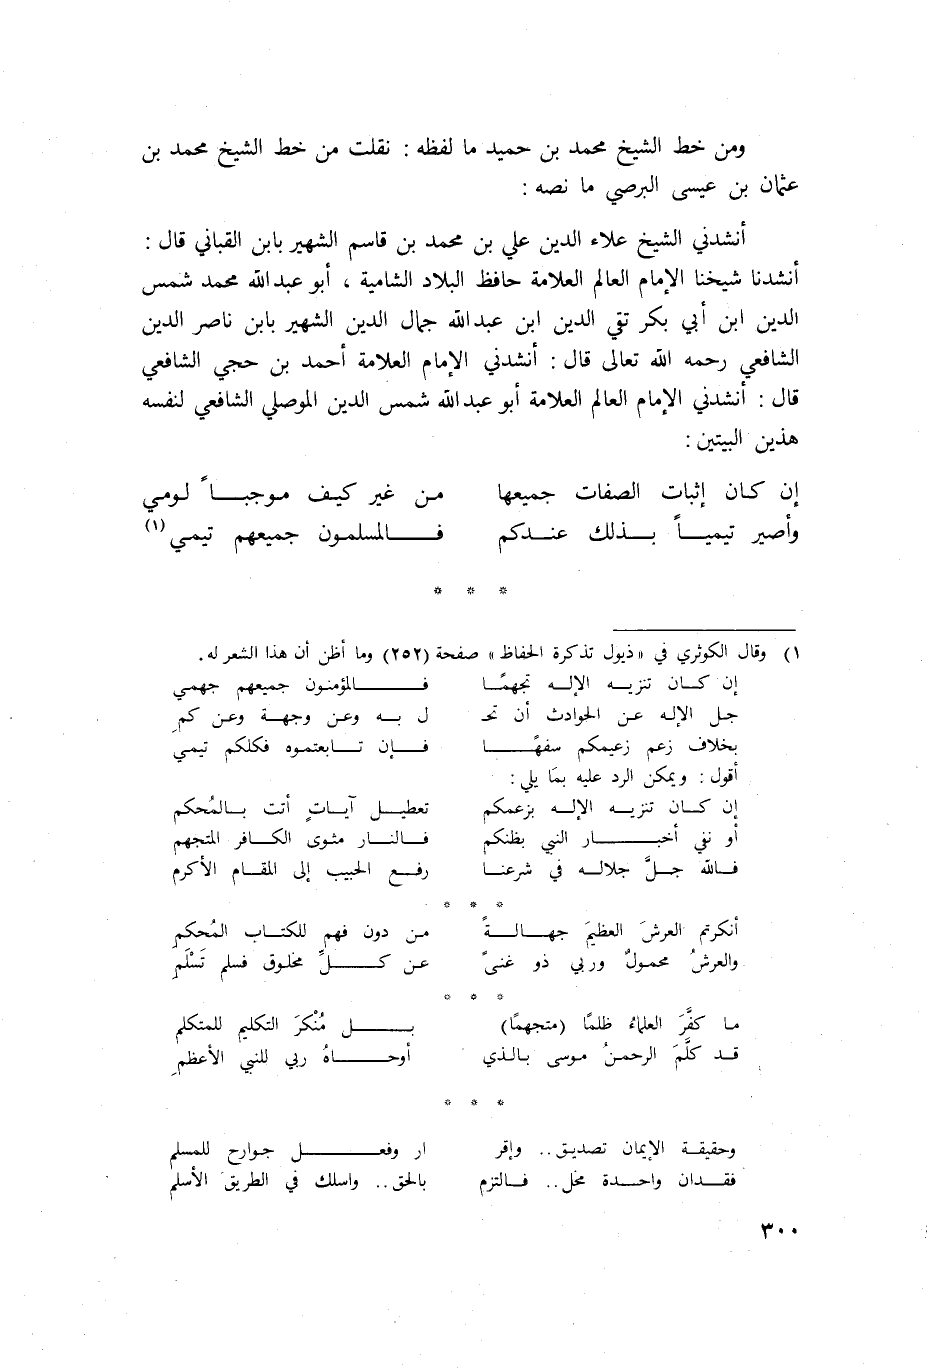 ومن خط الشيخ محمد بن حميد ما لفظه : نقلت من خط الشيخ محمد بن
عثمان بن عيسى البرصي ما نصه :
أنشدني الشيخ علاء الدين علي بن محمد بن قاسم الشهير بابن القباني قال :
أنشدنا شيخنا الإمام العالم العلامة حافظ البلاد الشامية ، أبو عبدالله محمد شمس
الدين ابن أبي بكر تقي الدين ابن عبدالله جمال الدين الشهير بابن ناصر الدين
الشافعي رحمه الله تعالى قال : أنشدني الإمام العلامة أحمد بن حجي الشافعي
قال : أنشدني الإمام العالم العلامة أبو عبدالله شمس الدين الموصلي الشافعي لنفسه
هذين البيتين :
إن كان إثبات الصفات جميعها من غير كيف موجباً لومي
وأصير تيمياً بذلك عندكم فالمسلمون جميعهم تيمي (١)
* * *
١) وقال الكوثري في «ذيول تذكرة الحفاظ» صفحة (٢٥٢) وما أظن أن هذا الشعر له.
إن كان تنزيه الإله تجهمًا فالمؤمنون جميعهم جهمي
جل الإله عن الحوادث أن تحـ ل به وعن وجهة وعن كمِ
بخلاف زعم زعيمكم سفهًا فإن تابعتموه فكلكم تيمي
أقول : ويمكن الرد عليه بما يلي :
إن كان تنزيه الإله بزعمكم تعطيل آياتٍ أتت بالمُحكم
أو نفي أخبار النبي بظنكم فالنار مثوى الكافر المتجهم
فالله جلَّ جلاله في شرعنا رفع الحبيب إلى المقام الأكرم
* * *
أنكرتم العرشَ العظيمَ جهالةً من دون فهم للكتاب المُحكم
والعرشُ محمولٌ وربي ذو غنىً عن كلِّ مخلوق فسلم تَسْلَم
* * *
ما كفَّرَ العلماءُ ظلمًا (متجهمًا) بل مُنْكرَ التكليم للمتكلم
قد كلَّمَ الرحمنُ موسى بالذي أوحاهُ ربي للنبي الأعظمِ
* * *
وحقيقة الإيمان تصديق.. وإقر ار وفعل جوارح للمسلم
فقدان واحدة مخل.. فالتزم بالحق.. واسلك في الطريق الأسلم
٣٠٠